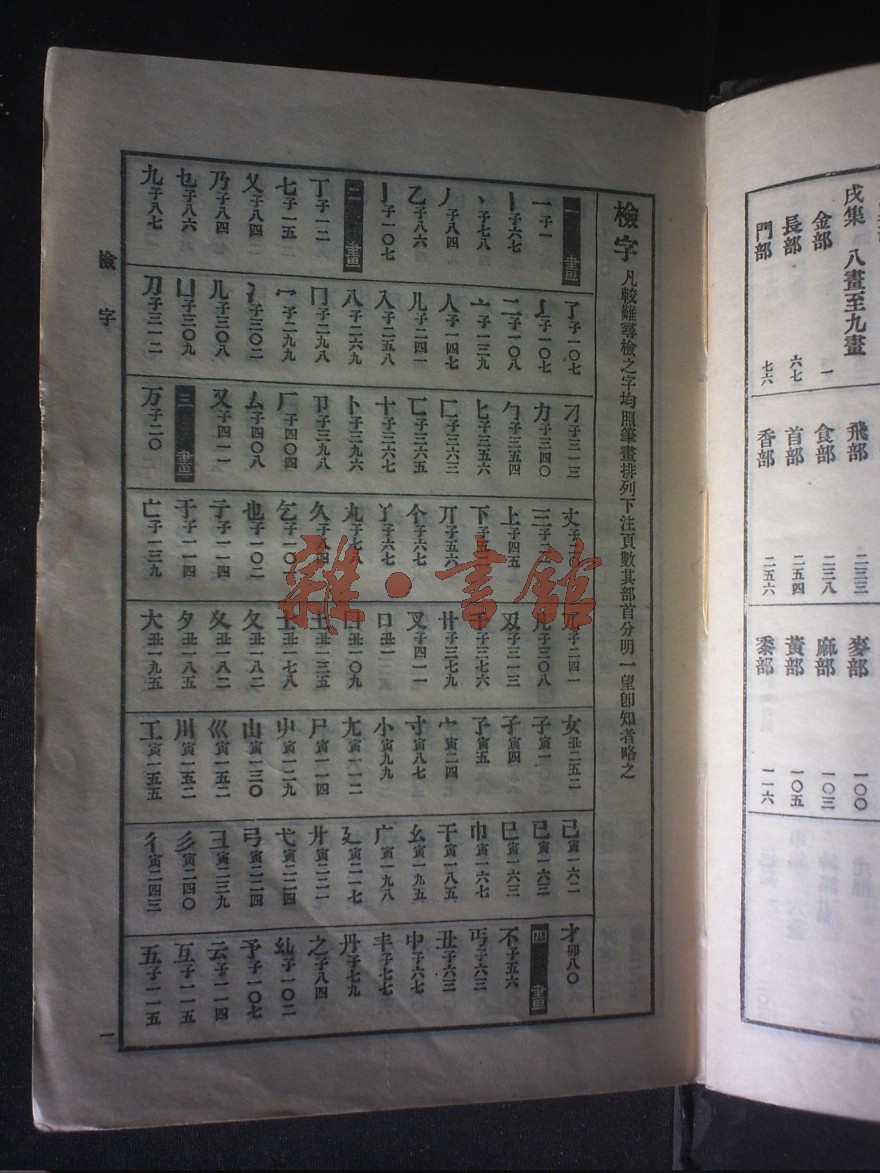 戌集 八畫至九畫
金部 一
長部 六七
門部 七六
飛部 二三三
食部 二三八
首部 二五四
香部 二五六
麥部 一〇〇
麻部 一〇三
黃部 一〇五
黍部 一一六
檢字 凡較難尋檢之字均照筆畫排列下注頁數其部首分明一望卽知者略之
一畫
一子一
丨子六七
丶子七八
丿子八四
乙子八六
亅子一〇七
二畫
丁子一二
七子一五
乂子八四
乃子八四
乜子八六
九子八七
了子一〇七
子一〇七
二子一〇八
亠子一三九
人子一四七
儿子二四一
入子二五八
八子二六九
冂子二九八
冖子二九九
冫子三〇二
几子三〇八
凵子三〇九
刀子三一二
刁子三一三
力子三四〇
勹子三五四
匕子三五六
匚子三六三
匸子三六五
十子三六七
卜子三九六
卩子三九八
厂子四〇四
厶子四〇八
又子四一一
三畫
万子二〇
丈子
三子
上子四五
下子五
丌子五六
个子六七
丫子六七
丸子七八
久子八四
乞子一〇
也子一〇二
亍子一一四
于子一一四
亡子一三九
兀子二四一
凡子三〇八
刄子三一三
千子三七六
廿子三七九
叉子四一一
口丑一
囗丑一〇九
土丑一三五
士丑一七八
夂丑一八二
夊丑一八二
夕丑一八五
大丑一九五
女丑二五二
子寅一
孑寅四
孓寅五
宀寅二四
寸寅八七
小寅九九
尢寅一一二
尸寅一一四
屮寅一二九
山寅一三〇
巛寅一五二
川寅一五二
工寅一五五
己寅一六二
已寅一六三
巳寅一六三
巾寅一六七
干寅一八五
幺寅一九五
广寅一九八
廴寅二一七
廾寅二二一
弋寅二二四
弓寅二二四
彐寅二三九
彡寅二四〇
彳寅二四三
才卯八〇
四畫
不子五六
丏子六三
丑子六三
中子六七
丰子七七
丹子七九
之子八四
乣子一〇二
予子一〇七
云子一一四
互子一一五
五子一一五
檢字
一
雜·書館